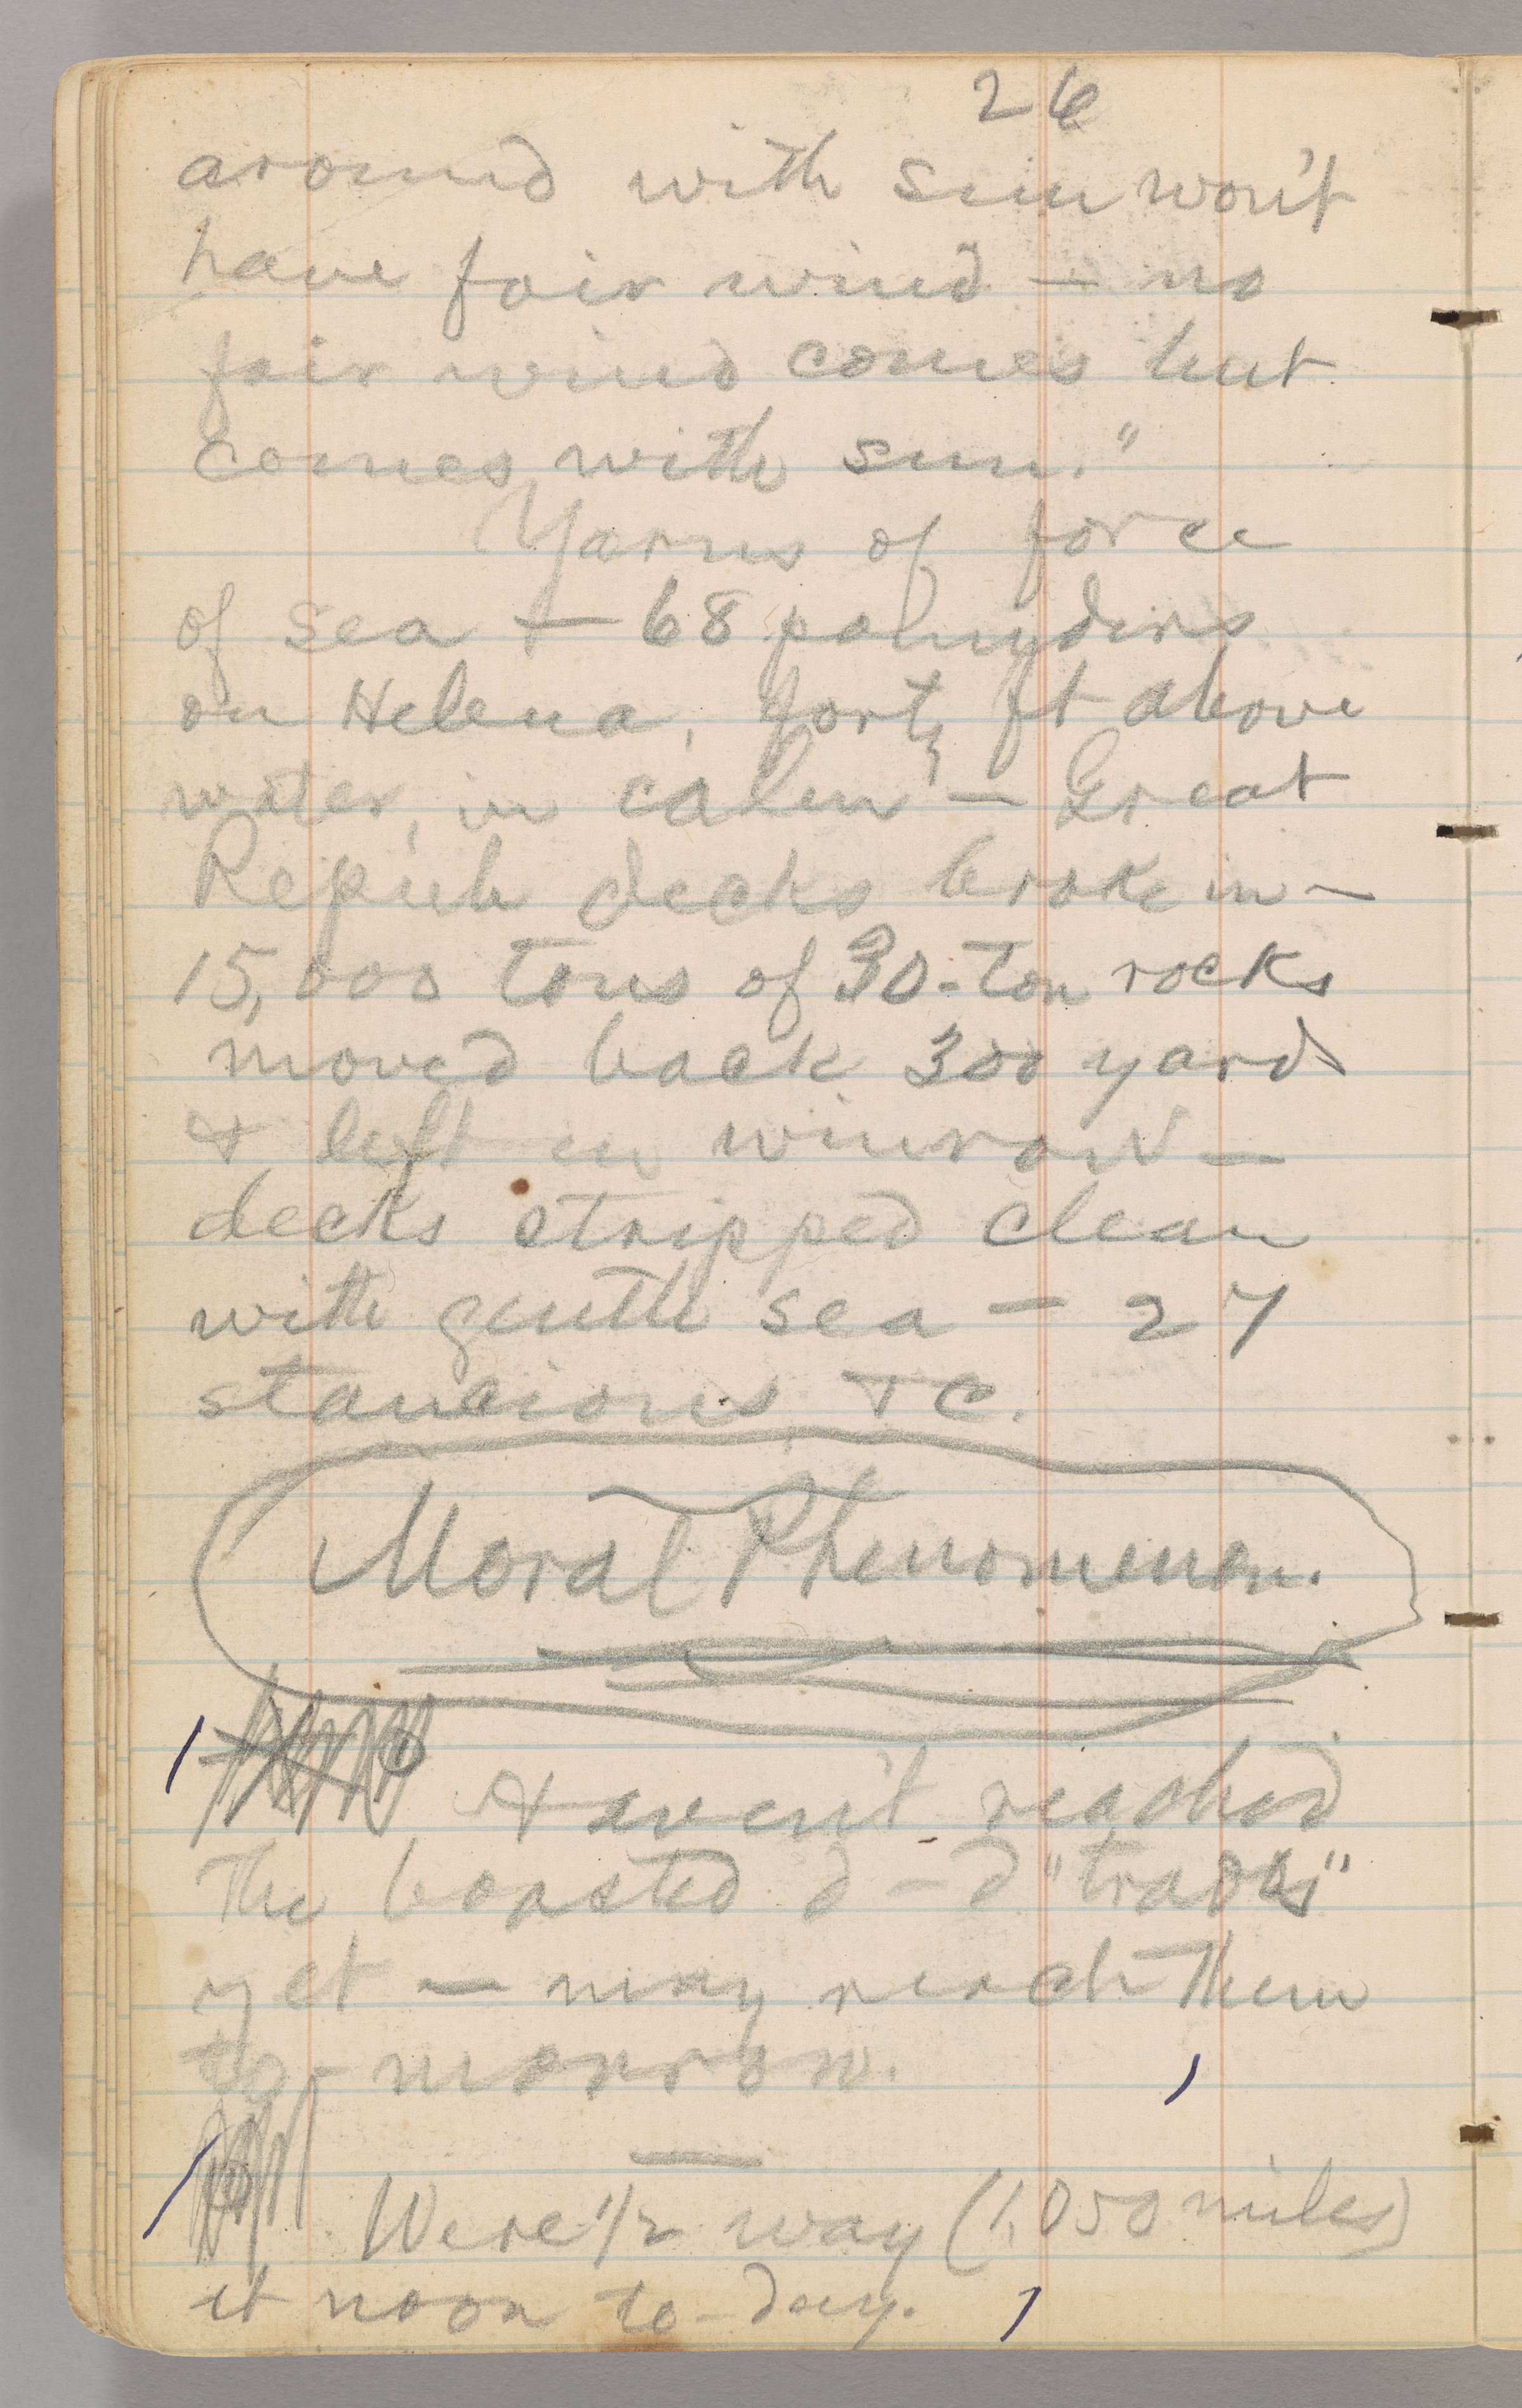 26
around with sun won't
have fair wind — no
fair wind comes but
comes with sun."
Yarns of force
of sea — 68 pounders
on Helena, forty ft above
water, in calm — Great
Repub decks broke in —
15,000 tons of 30-ton rocks
moved back 300 yards
& left in winrow —
decks stripped clean
with gentle sea — 27
stancions &c.
Moral Phenomenon.
Haven't reached
the boasted d—d "trades"
yet — may reach them
to-morrow.
Were 1/2 way (1,050 miles)
at noon to-day.